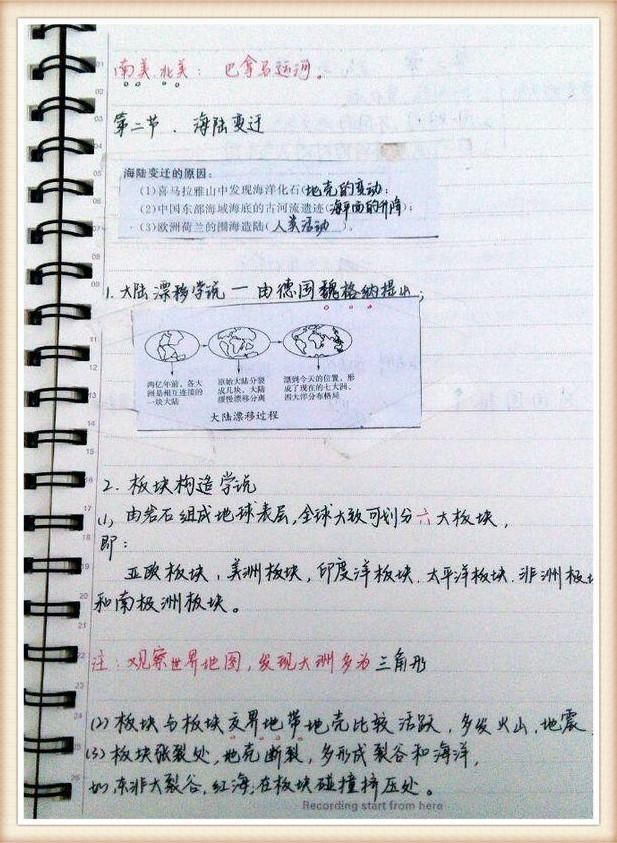 南美北美：巴拿马运河。
第二节．海陆变迁
海陆变迁的原因：
(1)喜马拉雅山中发现海洋化石(地壳的变动；
(2)中国东部海域海底的古河流遗迹(海平面的升降)；
(3)欧洲荷兰的围海造陆(人类活动)。
1.大陆漂移学说—由德国魏格纳提出；
两亿年前，各大洲是相互连接的一块大陆
原始大陆分裂成几块，大陆缓慢漂移分离
漂到今天的位置，形成了现在的七大洲、四大洋分布格局
大陆漂移过程
2.板块构造学说
(1)由岩石组成地球表层,全球大致可划分六大板块，
即：
亚欧板块，美洲板块，印度洋板块.太平洋板块.非洲板块
和南极洲板块。
注：观察世界地图，发现大洲多为三角形
(2)板块与板块交界地带地壳比较活跃，多发火山，地震
(3)板块张裂处,地壳断裂，多形成裂谷和海洋，
如,东非大裂谷,红海;在板块碰撞挤压处。
Recording start from here